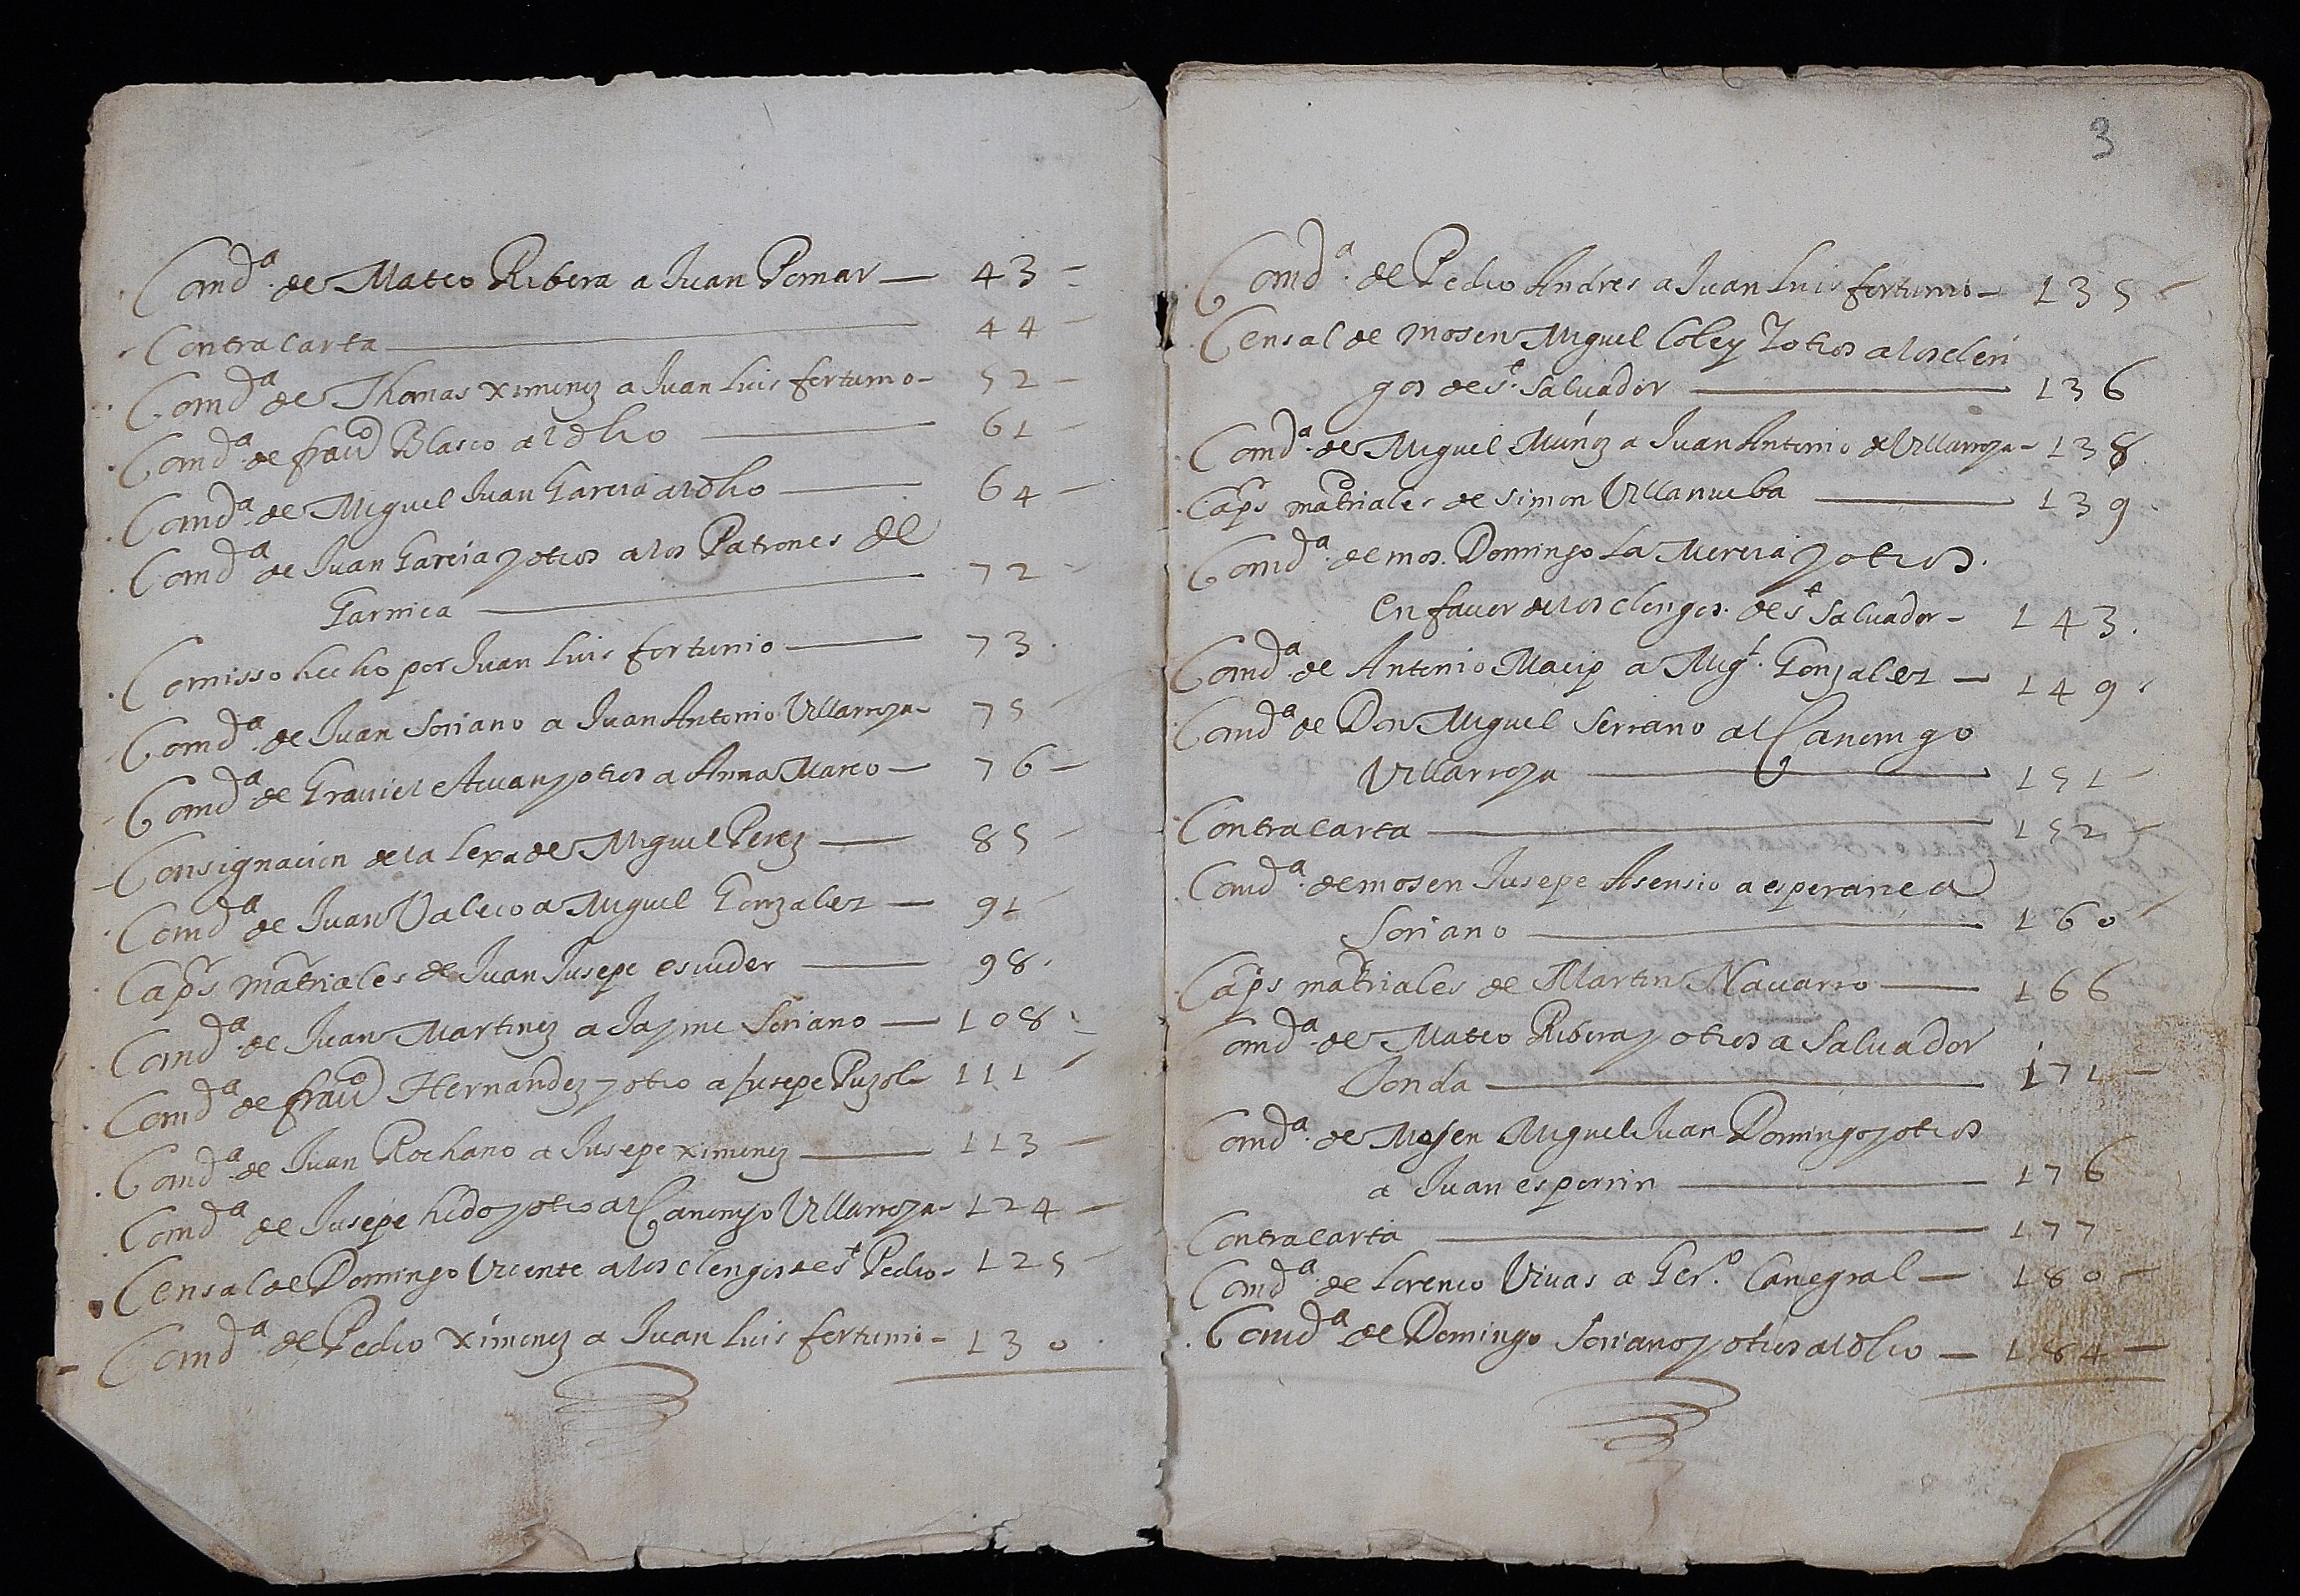 Comd.ª de Mateo Ribera a Juan Pomar — 43 -
Contracarta — 44 -
Comd.ª de Thomas Ximenez a Juan Luis fortunio - 52 -
Comd.ª de fran.co Blasco al dho — 61 -
Comd.ª de Miguel Juan Garcia al dho — 64 -
Comd.ª de Juan Garcia y otros a los Patrones de
Garnica — 72 -
Comisso hecho por Juan Luis fortunio — 73 .
Comd.ª de Juan Soriano a Juan Antonio Villarroya - 75
Comd.ª de Graviel y otros a Anna Marco — 76 -
Consignacion de la lexa de Miguel Perez — 85 -
Comd.ª de Juan Valero a Miguel Gonzalez — 91 -
Caps matriales de Juan Jusepe escuder — 98 .
Comd.ª de Juan Martinez a Jayme Soriano — 108 .
Comd.ª de fran.co Hernandez y otro a Jusepe Puzol - 111
Comd.ª de Juan Rochano a Jusepe ximenez — 113 -
Comd.ª de Jusepe y otro al Canonigo Villarroya - 124 -
Censal de Domingo Vicente a los clerigos de St Pedro - 125 -
Comd.ª de Pedro Ximenez a Juan Luis fortunio - 130 .
3
Comd.ª de Pedro Andres a Juan Luis fortunio - 135
Censal de mosen Miguel Coley Y otros a los cleri
gos de St. Saluador — 136
Comd.ª de Miguel Múñez a Juan Antonio de Villarroya - 138
Caps matriales de Simon Villanueba — 139 .
Comd.ª de mos. Domingo La Mercia y otros.
en fauor de los clerigos de St Saluador - 143 .
Comd.ª de Antonio Macip a Migl. Gonzalez — 149 .
Comd.ª de Don Miguel Serrano al Canonigo
Villarroya — 151 -
Contracarta — 152 -
Comd.ª de mosen Jusepe Asensio a esperanca
Soriano — 160
Caps matriales de Martin Nauarro — 166
Comd.ª de Mateo Ribera y otros a Saluador
Jonda — 171 -
Comd.ª de Mosen Miguel Juan Domingo y otros
a Juan esperrin — 176
Contracarta — 177
Comd.ª de Lorenco Viuas a Ger.º Canegral — 180 -
Comd.ª de Domingo Soriano y otros al dho — 184 -